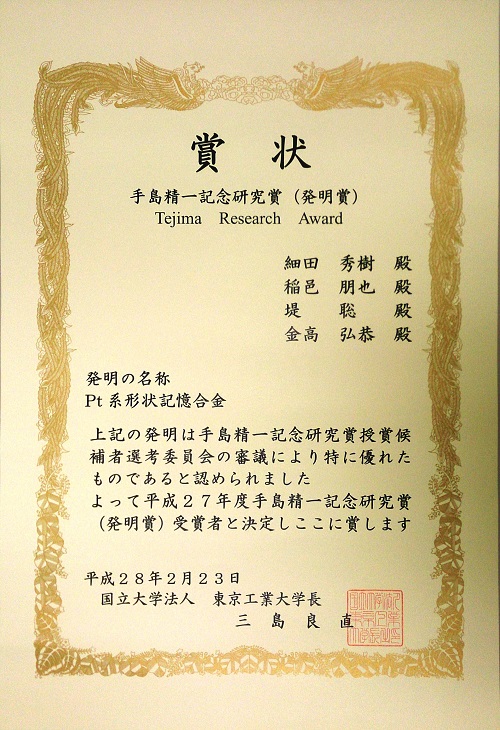 賞 状
手島精一記念研究賞（発明賞）
Tejima Research Award
細田 秀樹 殿
稲邑 朋也 殿
堤 聡 殿
金高 弘恭 殿
発明の名称
Pt系形状記憶合金
上記の発明は手島精一記念研究賞授賞候
補者選考委員会の審議により特に優れた
ものであると認められました
よって平成２７年度手島精一記念研究賞
（発明賞）受賞者と決定しここに賞します
平成２８年２月２３日
国立大学法人 東京工業大学長
三島良直